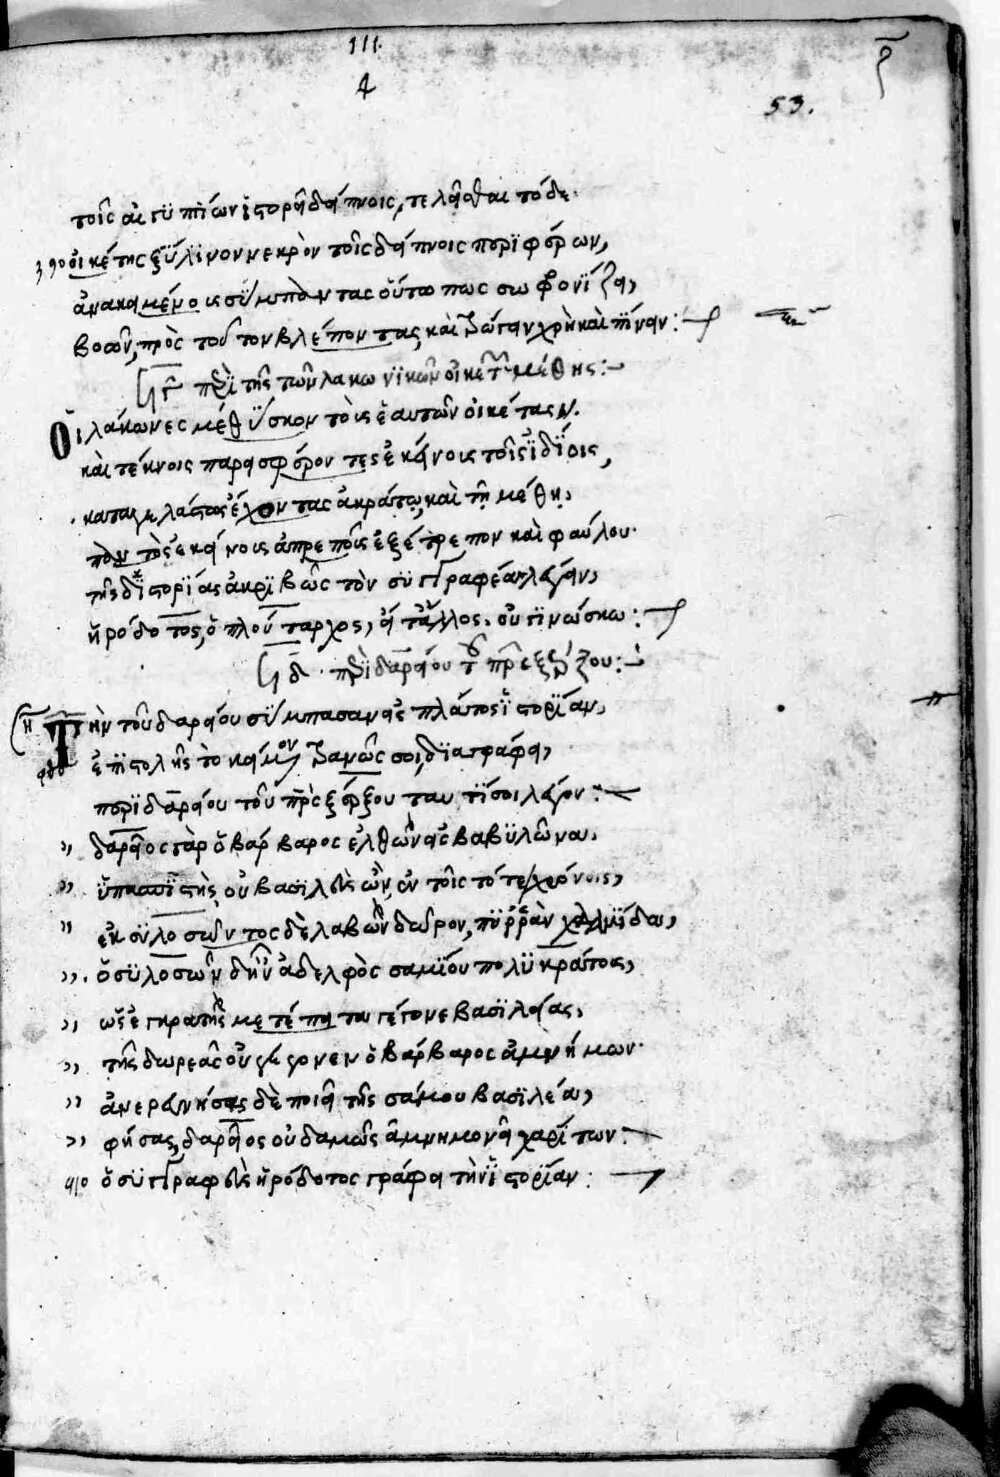 111.
4
53.
τοῖς αἰγυπτίων ἱστορεῖ δείπνοις, τελεῖσθαι τόδε.
390 οἰκέτης ξύλινον νεκρὸν τοῖς δείπνοις περιφέρων,
ἀνακειμένοις σύμπαντας οὕτω πως σωφρονίζει,
βοῶν, πρὸς τοῦτον βλέποντας, καὶ ζώειν χρὴ καὶ πίνειν:
γ περὶ τῆς τῶν λακωνικῶν οἰκετῶν μέθης:
Οἱ λάκωνες μέθυσκον τοὺς ἑαυτῶν οἰκέτας.
καὶ τέκνοις παρεισφέροντες ἐκείνους τοῖς ἰδίοις,
καταγελάστως ἔχοντας ἀκράτῳ, καὶ τῇ μέθῃ,
πάντως ἐκείνους ἀπρεποῦς ἐξέτρεπον καὶ φαύλου.
τῆς δ' ἱστορίας ἀκριβῶς τὸν συγγραφέα λέγειν,
ἡρόδοτος, ὁ πλούταρχος, εἴτ' ἄλλος. οὐ γινώσκω:
δ περὶ δαρείου τοῦ πρὲ ξέρξου:
Τὴν τοῦ δαρείου σύμπασαν εἰς πλάτος ἱστορίαν,
ἐπιστολῆς τὸ κείμενον ἱκανῶς σοι, διαγράφει,
περὶ δαρείου τοῦ πρὲ ξέρξου ταυτί σοι λέγον:
δαρεῖος γὰρ ὁ βάρβαρος ἐλθὼν εἰς βαβυλῶνα.
ὑπασπιστής, οὐ βασιλεὺς ὤν, ἐν τοῖς τότε χρόνοις,
ἐκ συλοσῶντος δὲ λαβὼν δῶρον, πυρρὰν χλαμίδα,
ὁ συλοσῶν δ' ἦν ἀδελφὸς σαμίου πολυκράτους,
ὡς ἐγκρατὴς μετέπειτα γέγονε βασιλείας,
τῆς δωρεᾶς οὐ γέγονεν ὁ βάρβαρος ἀμνήμων.
ἀνερωτήσας δὲ ποιεῖ τῆς σάμου βασιλέα,
φήσας, δαρεῖος οὐδαμῶς ἀμνημονεῖ χαρίτων:
410 ὁ συγγραφεὺς ἡρόδοτος γράφει τὴν ἱστορίαν: